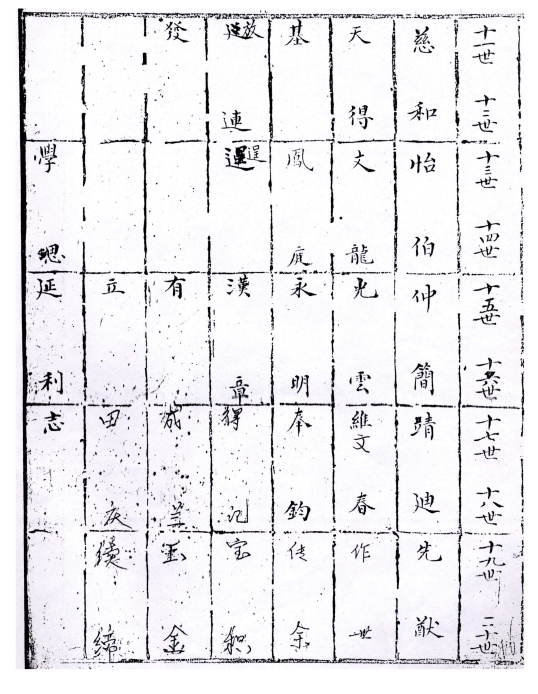 十一世 十二世 十三世 十四世 十五世 十六世 十七世 十八世 十九世 二十世
慈 和 怡 伯 仲 簡 靖 迪 先 猷
天 得 文 龍 光 雲 維文 春 作 世
基 鳳 庭 永 明 奉 鈞 传 余
連 漢 章 記 宝
發 有 成 兰 玉 金
立 田 庆 續 締
學 延 利 志